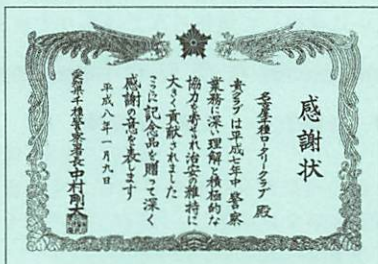 感謝状
名古屋千種ロータリークラブ 殿
貴クラブは平成七年中警察
業務に深い理解と積極的な
協力を寄せられ治安の維持に
大きく貢献されました
ここに記念品を贈って深く
感謝の意を表します
平成八年一月九日
愛知県千種警察署長 中村剛士